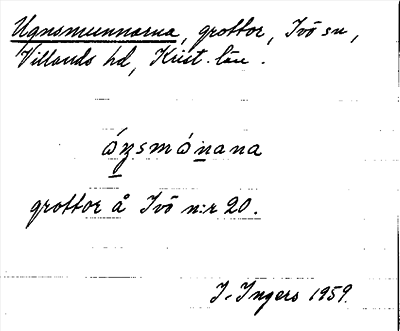 Ugnsmunnarna, grottor, Ivö sn,
Villands hd, Krist. län.
grottor å Ivö n:r 20.
I. Ingers 1959.